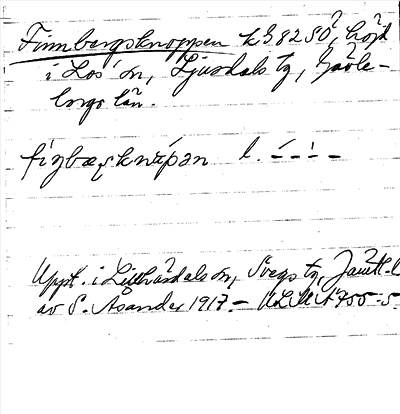 Finnbergsknoppen kg 8280, höjd
i Los sn, Ljusdals tg, Gävle-
borgs län.
l.
Uppt. i Lillhärdals sn, Svegs tg, Jämtl. l
av S. Asander 1917. –